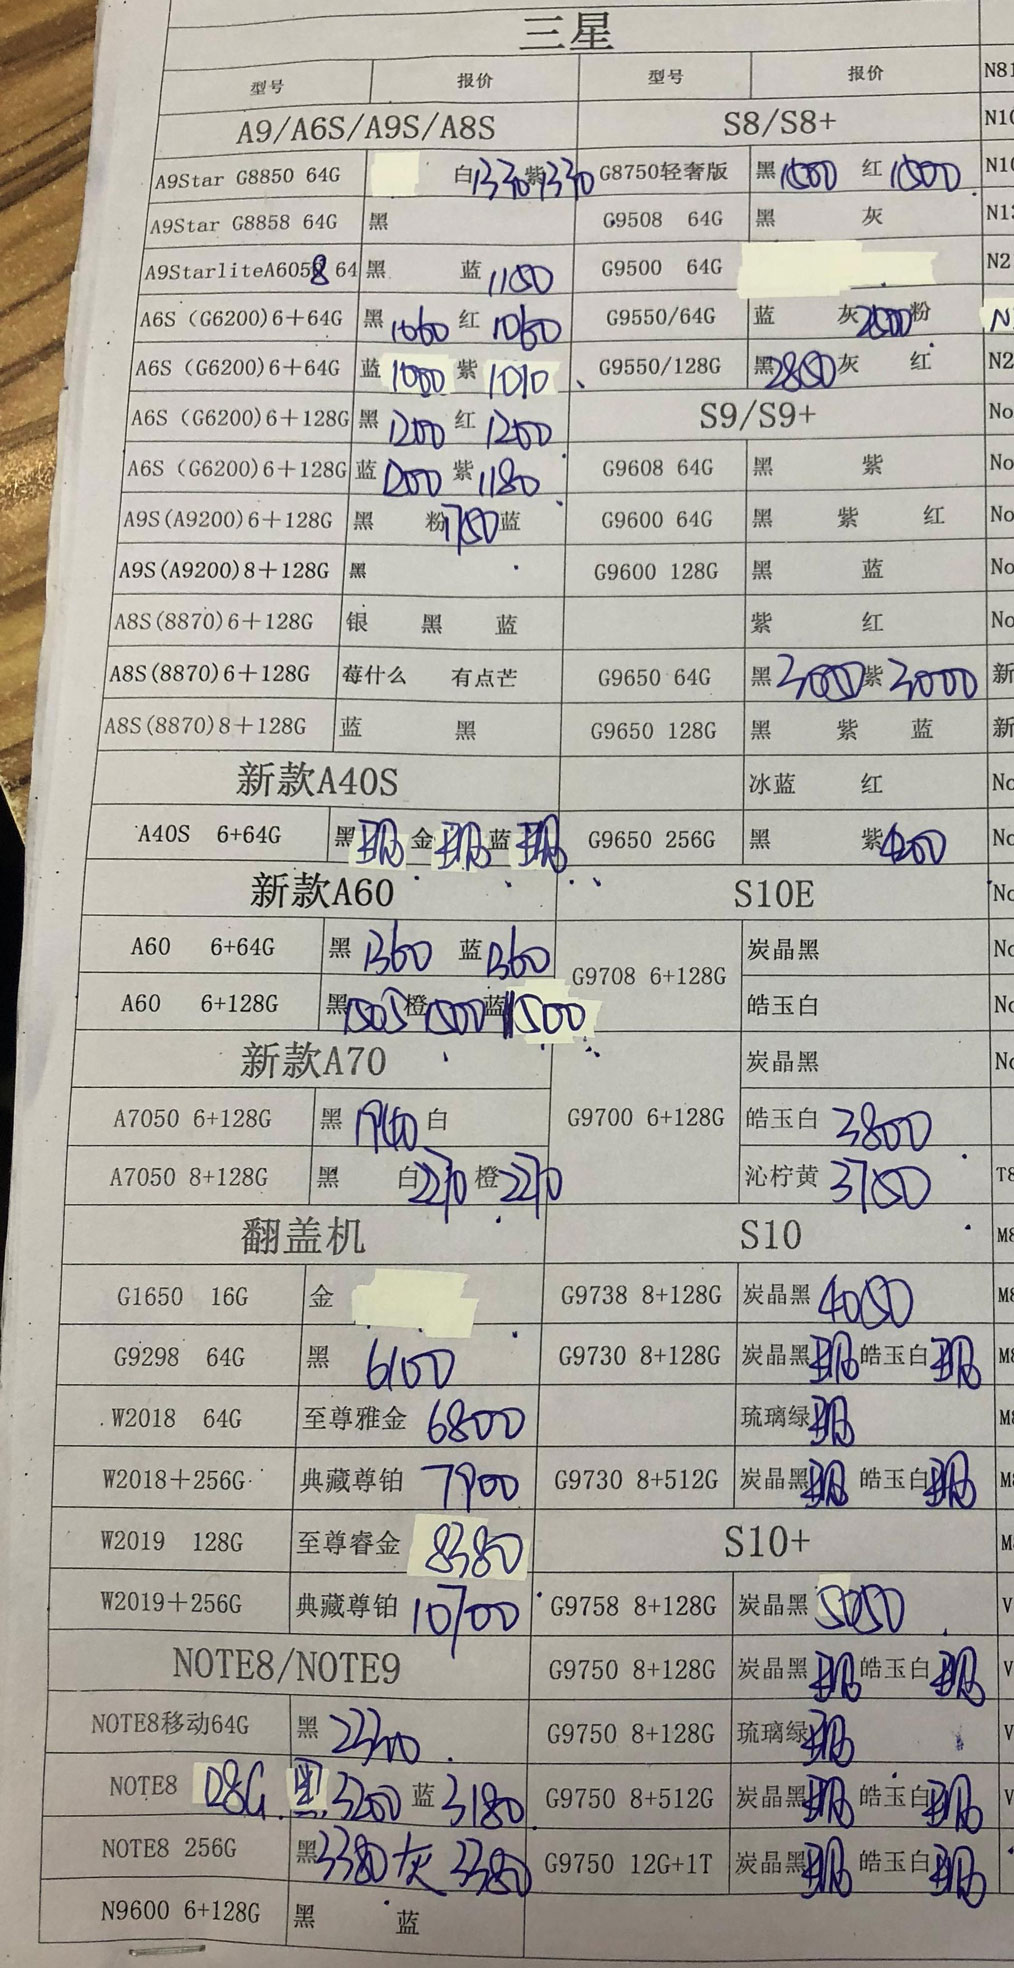 三星
型号 报价 型号 报价 N81
A9/A6S/A9S/A8S S8/S8+
A9Star G8850 64G 白1330 紫1330 G8750轻奢版 黑1500 红1500
A9Star G8858 64G 黑 G9508 64G 黑 灰
A9StarliteA6058 64 黑 蓝1150 G9500 64G N2
A6S (G6200)6+64G 黑1060 红1060 G9550/64G 蓝 灰 粉
A6S (G6200)6+64G 蓝1000 紫1010 G9550/128G 黑2850 灰 红 N2
A6S (G6200)6+128G 黑1200 红1200 S9/S9+ No
A6S (G6200)6+128G 蓝1200 紫1180 G9608 64G 黑 紫 No
A9S(A9200)6+128G 黑 粉1750 蓝 G9600 64G 黑 紫 红 No
A9S(A9200)8+128G 黑 G9600 128G 黑 蓝 No
A8S(8870)6+128G 银 黑 蓝 紫 红 No
A8S(8870)6+128G 莓什么 有点芒 G9650 64G 黑3000 紫3000 新
A8S(8870)8+128G 蓝 黑 G9650 128G 黑 紫 蓝 新
新款A40S 冰蓝 红 No
A40S 6+64G 黑 金 蓝 G9650 256G 黑 紫 No
新款A60 S10E No
A60 6+64G 黑1360 蓝1360 G9708 6+128G 炭晶黑 No
A60 6+128G 黑1505 橙1500 蓝1500 皓玉白 No
新款A70 炭晶黑 No
A7050 6+128G 黑1940 白 G9700 6+128G 皓玉白 3800
A7050 8+128G 黑 白2270 橙2270 沁柠黄 3750 T8
翻盖机 S10 M8
G1650 16G 金 G9738 8+128G 炭晶黑 4050 M8
G9298 64G 黑 6100 G9730 8+128G 炭晶黑 皓玉白 M8
W2018 64G 至尊雅金 6800 琉璃绿 M8
W2018+256G 典藏尊铂 7900 G9730 8+512G 炭晶黑 皓玉白 M8
W2019 128G 至尊睿金 8380 S10+ M8
W2019+256G 典藏尊铂 10700 G9758 8+128G 炭晶黑 5050 V
NOTE8/NOTE9 G9750 8+128G 炭晶黑 皓玉白 V
NOTE8移动64G 黑 G9750 8+128G 琉璃绿 V
NOTE8 128G 黑3200 蓝3180 G9750 8+512G 炭晶黑 皓玉白 V
NOTE8 256G 黑3380 灰3380 G9750 12G+1T 炭晶黑 皓玉白
N9600 6+128G 黑 蓝